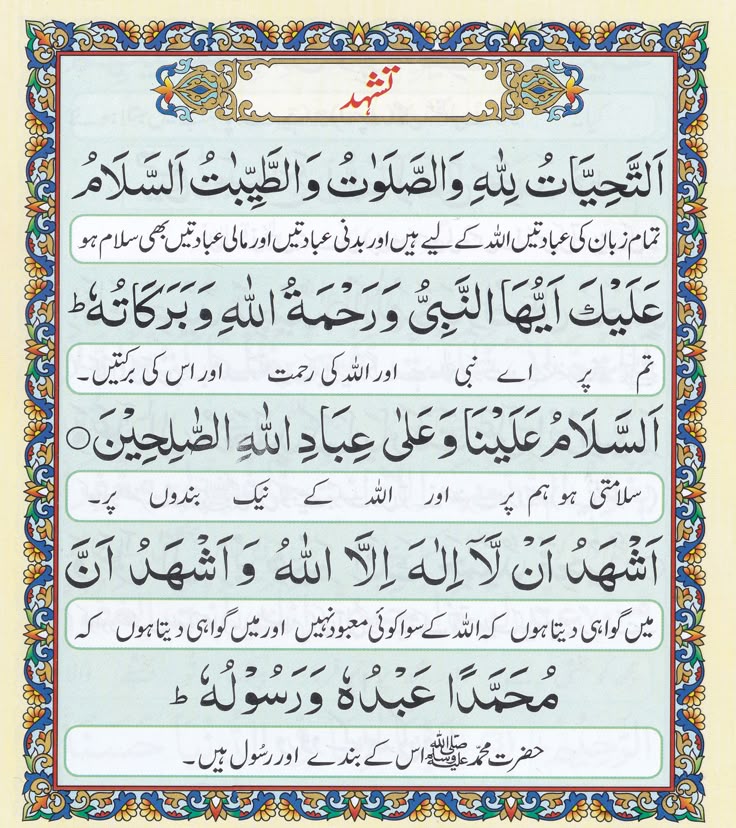 تشہد
اَلتَّحِیَّاتُ لِلّٰهِ وَالصَّلَوٰتُ وَالطَّیِّبٰتُ اَلسَّلَامُ
تمام زبان کی عبادتیں اللہ کے لیے ہیں اور بدنی عبادتیں اور مالی عبادتیں بھی سلام ہو
عَلَیْكَ اَیُّهَا النَّبِیُّ وَرَحْمَةُ اللّٰهِ وَبَرَكَاتُهٗ ؕ
تم پر اے نبی اور اللہ کی رحمت اور اس کی برکتیں۔
اَلسَّلَامُ عَلَیْنَا وَعَلٰی عِبَادِ اللّٰهِ الصّٰلِحِیْنَ ○
سلامتی ہو ہم پر اور اللہ کے نیک بندوں پر۔
اَشْهَدُ اَنْ لَّآ اِلٰهَ اِلَّا اللّٰهُ وَاَشْهَدُ اَنَّ
میں گواہی دیتا ہوں کہ اللہ کے سوا کوئی معبود نہیں اور میں گواہی دیتا ہوں کہ
مُحَمَّدًا عَبْدُهٗ وَرَسُوْلُهٗ ؕ
حضرت محمّد ﷺ اس کے بندے اور رسُول ہیں۔